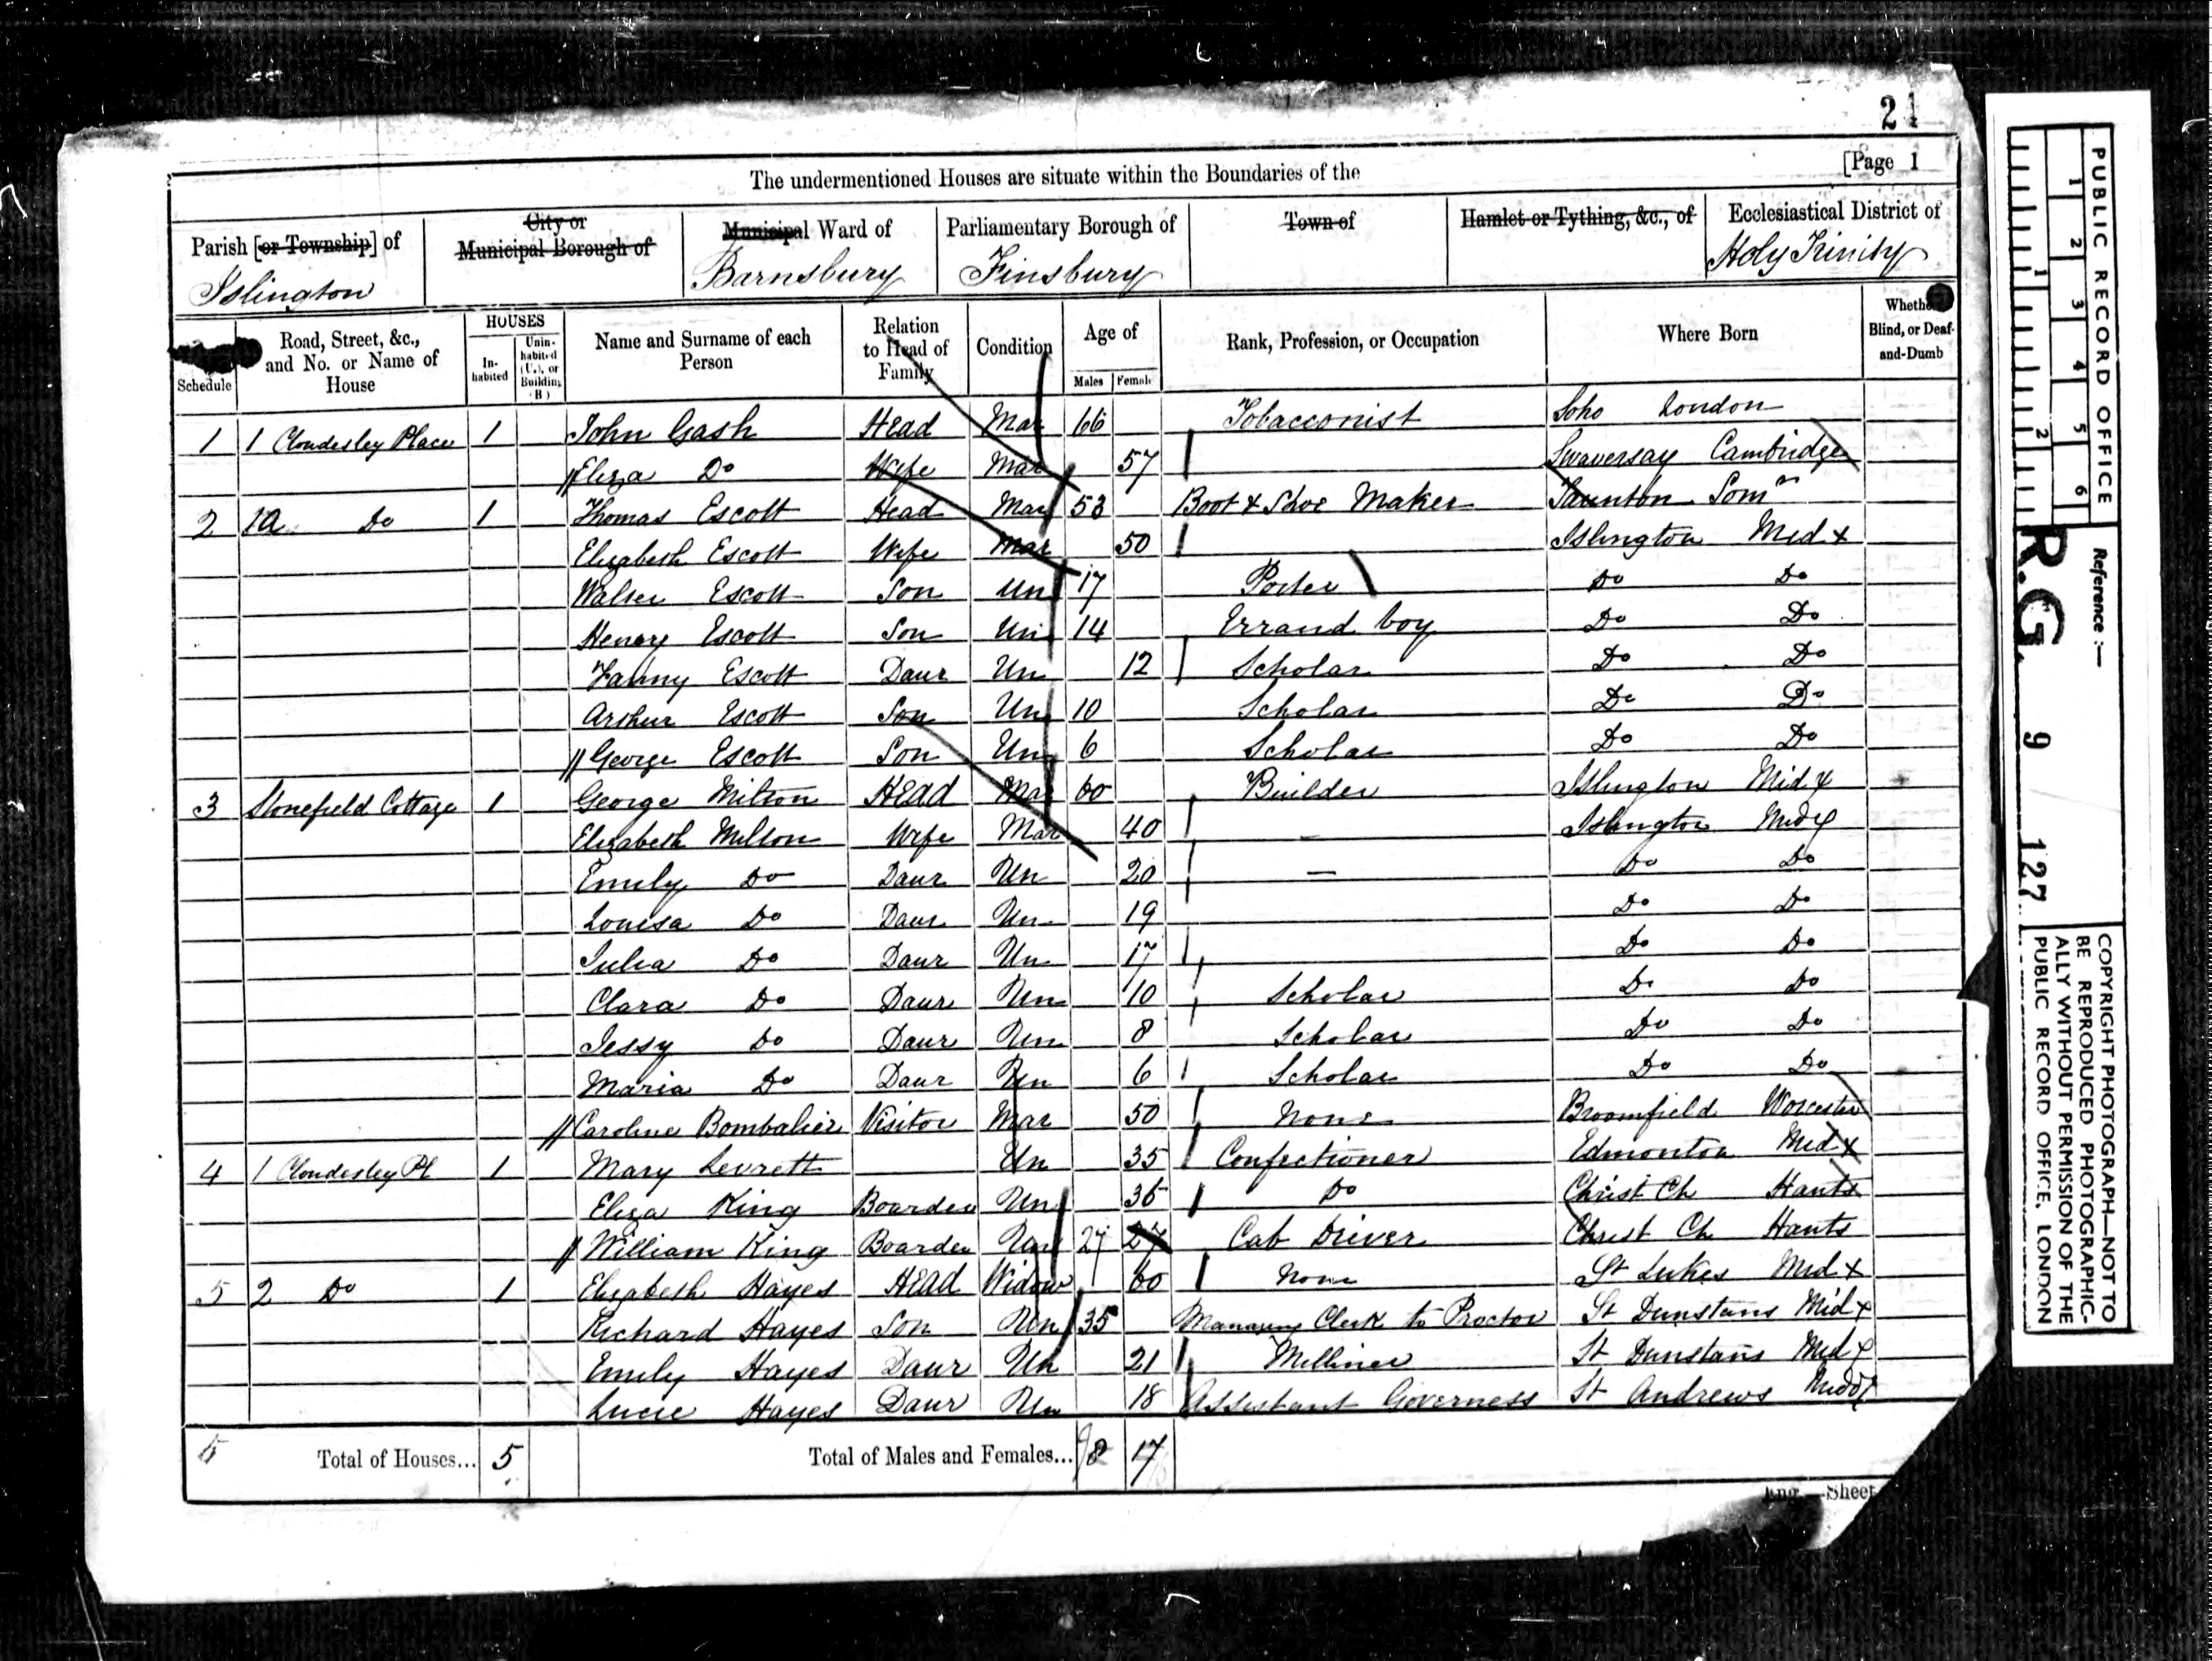 24
[Page 1
The undermentioned Houses are situate within the Boundaries of the
Parish [or Township] of
City or Municipal Borough of
Municipal Ward of
Parliamentary Borough of
Town of
Hamlet or Tything, &c., of
Ecclesiastical District of
Islington
Barnsbury
Finsbury
Holy Trinity
Schedule
Road, Street, &c., and No. or Name of House
HOUSES
In-habited
Unin-habited (U.), or Building (B)
Name and Surname of each Person
Relation to Head of Family
Condition
Age of
Males
Female
Rank, Profession, or Occupation
Where Born
Whether Blind, or Deaf-and-Dumb
1 1 Cloudesley Place 1 John Gash Head Mar 66 Tobacconist Soho London
Eliza Do Wife Mar 57 Swaversay Cambridge
2 1a Do 1 Thomas Escott Head Mar 53 Boot & Shoe Maker Taunton Somr
Elizabeth Escott Wife Mar 50 Islington Midx
Walter Escott Son Un 17 Porter Do Do
Henry Escott Son Un 14 Errand boy Do Do
Fanny Escott Daur Un 12 Scholar Do Do
Arthur Escott Son Un 10 Scholar Do Do
George Escott Son Un 6 Scholar Do Do
3 Stonefield Cottage 1 George Milton Head Mar 60 Builder Islington Midx
Elizabeth Milton Wife Mar 40 — Islington Midx
Emily Do Daur Un 20 — Do Do
Louisa Do Daur Un 19 Do Do
Julia Do Daur Un 17 Do Do
Clara Do Daur Un 10 Scholar Do Do
Jessy Do Daur Un 8 Scholar Do Do
Maria Do Daur Un 6 Scholar Do Do
Caroline Bombalier Visitor Mar 50 None Broomfield Worcester
4 1 Cloudesley Pl 1 Mary Levrett Un 35 Confectioner Edmonton Midx
Eliza King Boarder Un 36 Do Christ Ch Hants
William King Boarder Un 27 27 Cab Driver Christ Ch Hants
5 2 Do 1 Elizabeth Hayes Head Widow 60 None St Lukes Midx
Richard Hayes Son Un 35 Managing Clerk to Proctor St Dunstans Midx
Emily Hayes Daur Un 21 Milliner St Dunstans Midx
Lucie Hayes Daur Un 18 Assistant Governess St Andrews Middx
5 Total of Houses... 5 Total of Males and Females... 8 17
Eng.—Sheet
PUBLIC RECORD OFFICE
1 2 3 4 5 6
1 2
Reference :—
R.G. 9 127
COPYRIGHT PHOTOGRAPH—NOT TO
BE REPRODUCED PHOTOGRAPHIC-
ALLY WITHOUT PERMISSION OF THE
PUBLIC RECORD OFFICE, LONDON